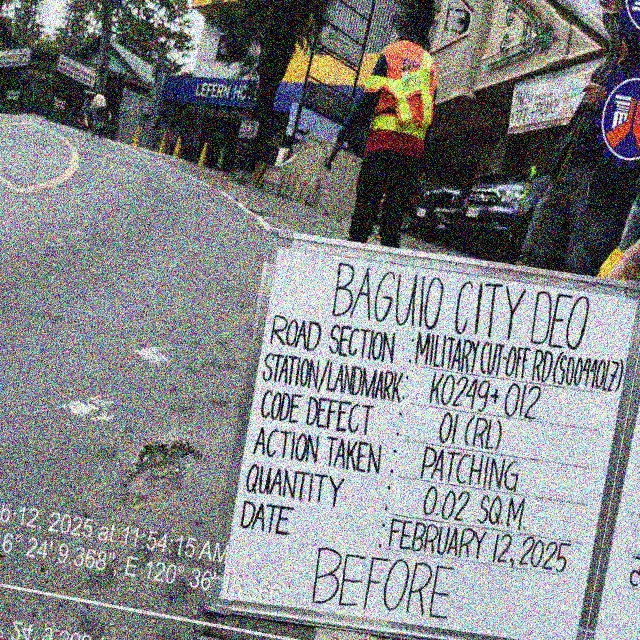 BAGUIO CITY DEO
ROAD SECTION : MILITARY CUT-OFF RD (S00991017)
STATION/LANDMARK: K0249+012
CODE DEFECT : 01 (RL)
ACTION TAKEN : PATCHING
QUANTITY : 0.02 SQ.M.
DATE : FEBRUARY 12, 2025
BEFORE
12, 2025 at 11:54:15 AM
6° 24' 9.368", E 120° 36'